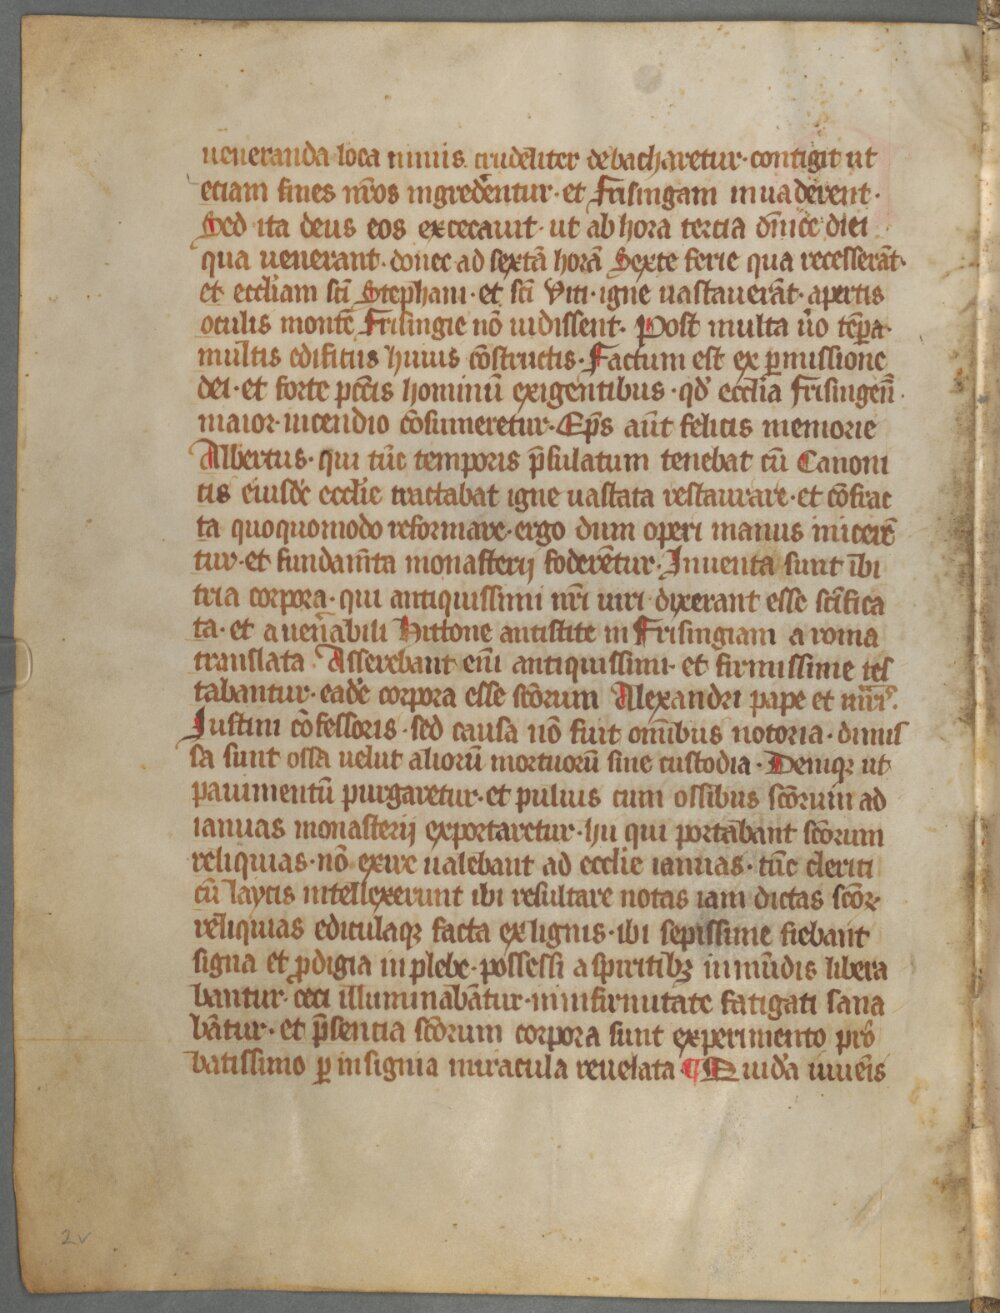 ueneranda loca nimis crudeliter debacharetur · contigit ut
etiam fines nr̄os ingrederentur · et Frisingam inuaderent ·
Sed ita deus eos excecauit · ut ab hora tercia dn̄ice diei
qua uenerant · donec ad sextā horā Sexte ferie qua recesserāt ·
et eccl̄iam sc̄i Stephani · et sc̄i Viti · igne uastauerāt · apertis
oculis montē Frisingie nō uidissent · Post multa u̾o tēp̲a ·
multis edificiis huius cōstructis · Factum est ex p̲missione
dei · et forte pcc̄is hominū exigentibus · qd̾ eccl̄ia frisingen̄ ·
maior · incendio cōsumeretur · Ep̄s aūt felicis memorie
Albertus · qui tūc temporis p̄sulatum tenebat cū Canoni
cis eiusdē eccl̄ie tractabat igne uastata restaurare · et cōfrac
ta quoquomodo reformare · ergo dum operi manus inicerē
tur · et fundam̄ta monasterij foderētur · Inuenta sunt ībi
tria corpora · qui antiquissimi nr̄i uiri dixerant esse sc̄ifica
ta · et a uen̄abili Hittone antistite in Frisingiam a roma
translata · Asserebant eni̅ antiquissimi · et firmissime tes
tabantur · eadē corpora esse sc̄orum Alexandri pape et mr̄iꝰ ·
Iustini cōfessoris · sed causa nō fuit om̄ibus notoria · dimis
sa sunt ossa uelut aliorū mortuorū sine custodia · Deniqꝫ ut
pauimentū purgaretur · et puluis cum ossibus sc̄orum ad
ianuas monasterij exportaretur · hii qui portabant sc̄orum
reliquias · nō exire ualebant ad eccl̄ie ianuas · tūc clerici
cū laycis intellexerunt ibi resultare notas iam dictas sc̄oꝝ
reliquias ediculaqꝫ facta ex lignis · ibi sepissime fiebant
signa et ꝓdigia in plebe · possessi a spiritibꝫ inmūdis libera
bantur · ceci illuminabātur · in infirmitate fatigati sana
bātur · et p̄sencia sc̄orum corpora sunt experimento pro
batissimo ꝑ insignia miracula reuelata ¶ Quidā iuuēis
2v